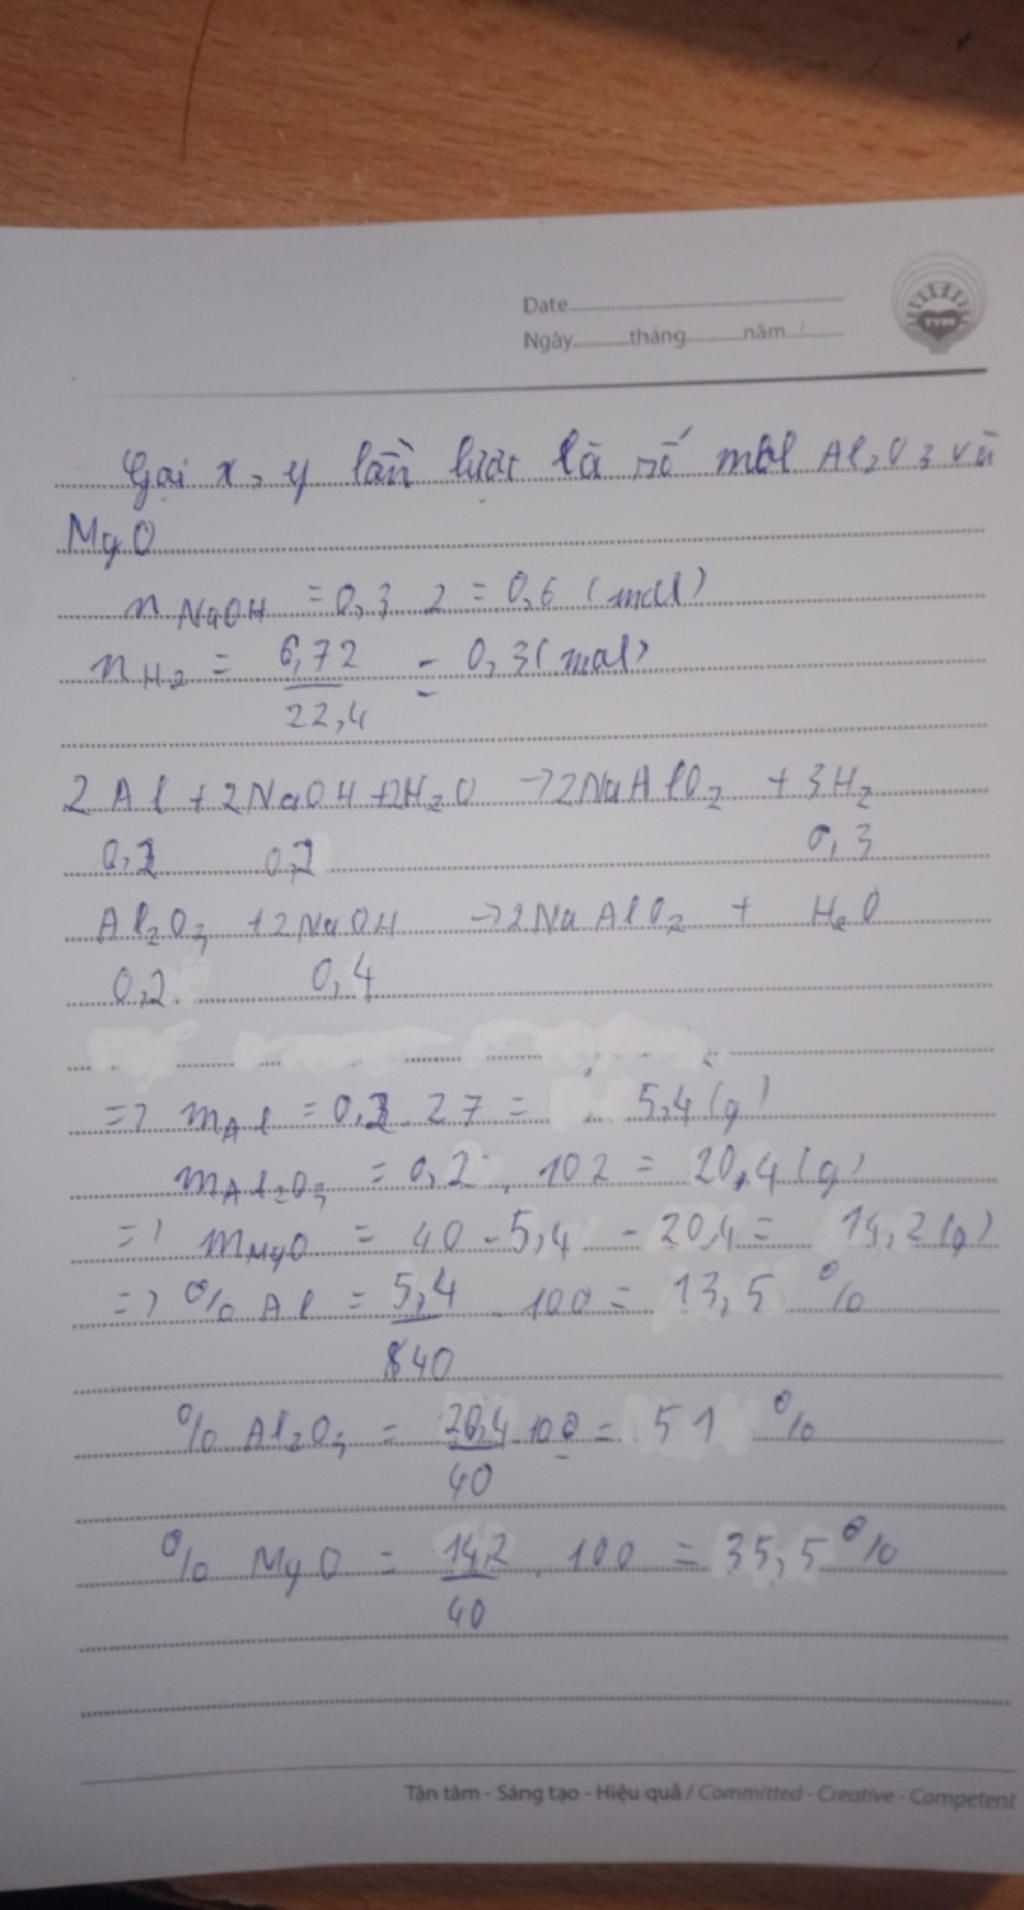 Date
Ngày tháng năm
TYM
Gọi x, y lần lược là số mol Al2O3 và
MgO
n NaOH = 0,3 2 = 0,6 (mol)
n H2 = 6,72 / 22,4 = 0,3 (mol)
2Al + 2NaOH + 2H2O → 2NaAlO2 + 3H2
0,2 0,2 0,3
Al2O3 + 2NaOH → 2NaAlO2 + H2O
0,2 0,4
=> mAl = 0,2 . 27 = 5,4 (g)
mAl2O3 = 0,2 . 102 = 20,4 (g)
=> mMgO = 40 - 5,4 - 20,4 = 14,2 (g)
=> % Al = 5,4 / 40 . 100 = 13,5 %
% Al2O3 = 20,4 / 40 . 100 = 51 %
% MgO = 14,2 / 40 . 100 = 35,5 %
Tận tâm - Sáng tạo - Hiệu quả / Committed - Creative - Competent